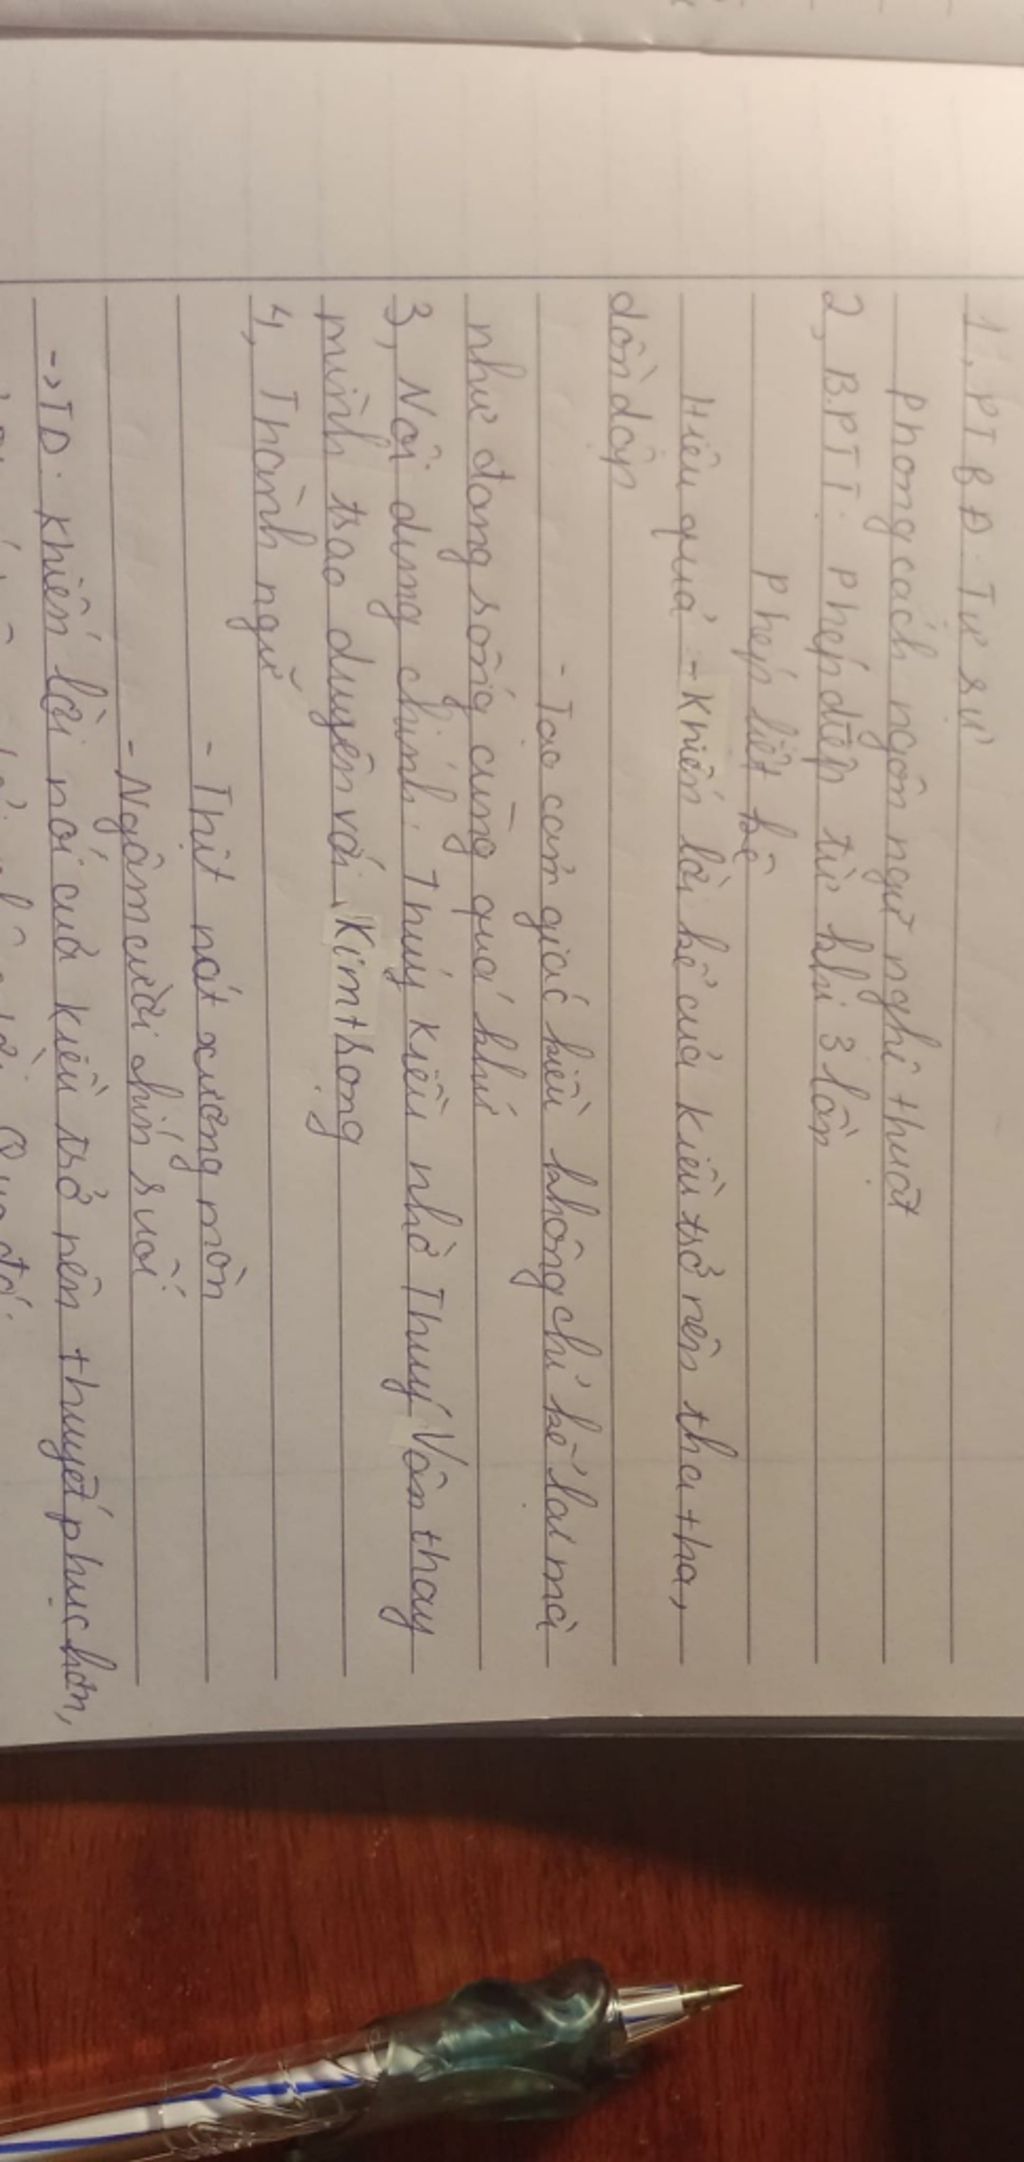 1, PTBĐ: Tự sự
Phong cách ngôn ngữ nghệ thuật
2, BPTT: Phép điệp từ khi 3 lần
Phép liệt kê
Hiệu quả - Khiến lời kể của Kiều trở nên tha tha,
dồn dập
- Tạo cảm giác kiều không chỉ kể lại mà
như đang sống cùng quá khứ
3, Nội dung chính: Thuý Kiều nhờ Thuý Vân thay
mình trao duyên với Kim trọng
4, Thành ngữ
- Thịt nát xương mòn
- Ngậm cười chín suối
-> TD: Khiến lời nói của Kiều trở nên thuyết phục hơn,